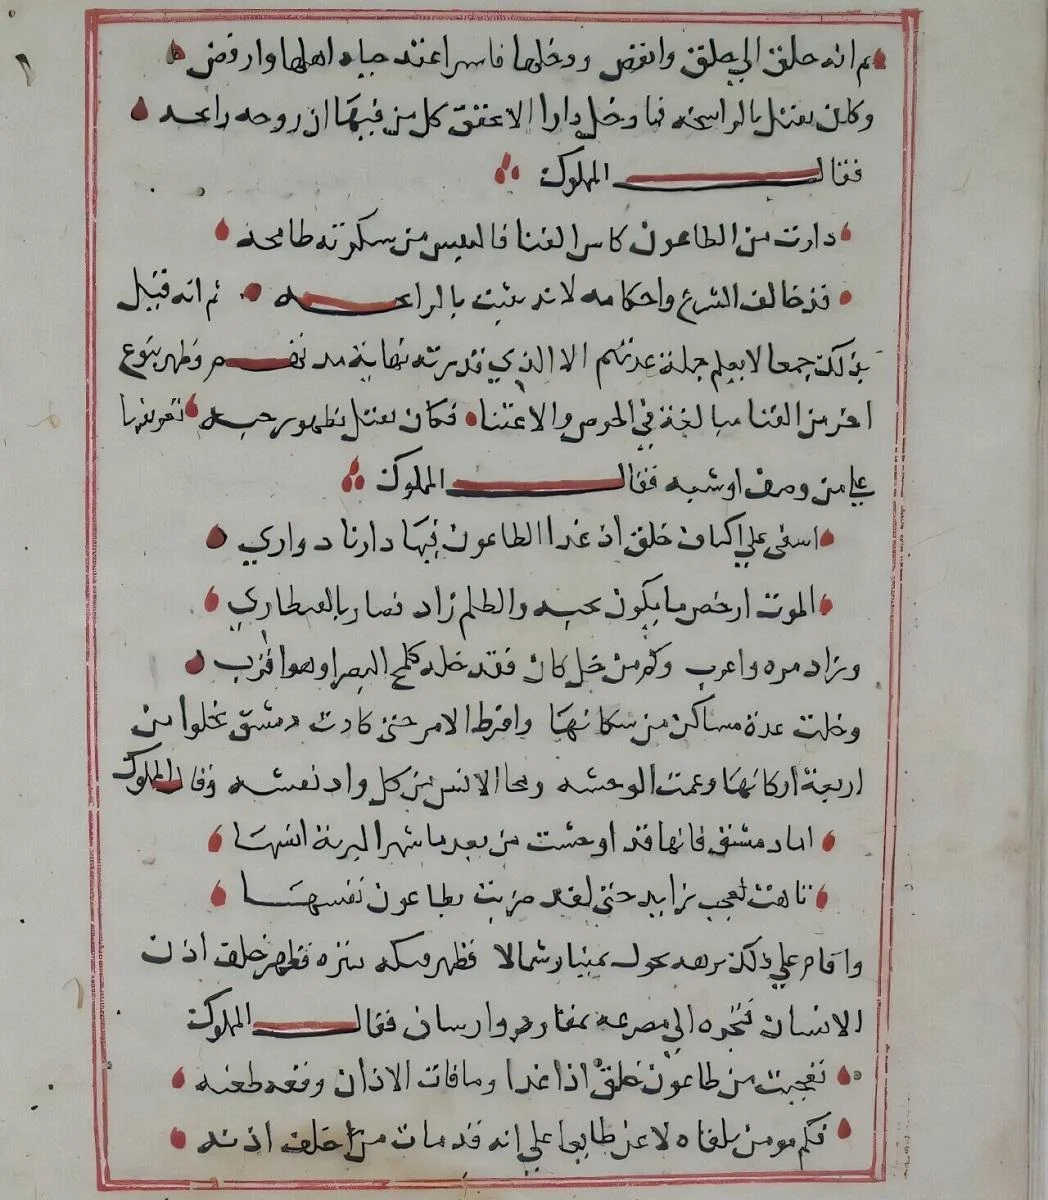 ثم انه حلق الي جلق وانقض ودخلها فاسرا عنده حياه اهلها وارفض
وكان يقتل بالرايحه فما دخل دارا الا عتق كل من فيها ان روحه رايحه
فقال المملوك
دارت من الطاعون كاس الفنا فالنفس من سكرته طامحه
قد خالف الشرع واحكامه لانه يثبت بالرايحه ثم انه قتل
بذلك جمعا لا يعلم جملة عدتهم الا الذي قدرته نهاية مد نفسهم وظهر بنوع
اخر من الفنا مبالغة في الحرص والاعتنا فكان يقتل بظهور حبه
علي من وصف اوشبه فقال المملوك
اسفي علي اكناف جلق اذ غدا الطاعون فيها دارنا دواري
الموت ارخص ما يكون بحبه والظلم زاد فصار بالقنطاري
وزاد مره واعرب وكم من خل كان فقد خله كلمح البصر او هو اقرب
وخلت عدة مساكن من سكانها وافرط الامر حتى كادت دمشق تخلوا من
اربعة اركانها وعمت الوحشه ومحا الانس من كل واد نعشه وقال المملوك
اما دمشق فانها قد اوحشت من بعد ما شهد البرية انسها
تاهت بعجب زايد حتى لقد ضربت بطاعون نفسها
واقام علي ذلك برهه يحول يمينا وشمالا فظهر خلف اذن
الانسان فتجره الي مصرعه بمقاود وارسان فقال المملوك
تعجبت من طاعون جلق اذا غدا وما فات الاذان وقعه طعنه
فكم مومن يلقاه لا عن طايعا علي انه قد مات من خلف اذنه